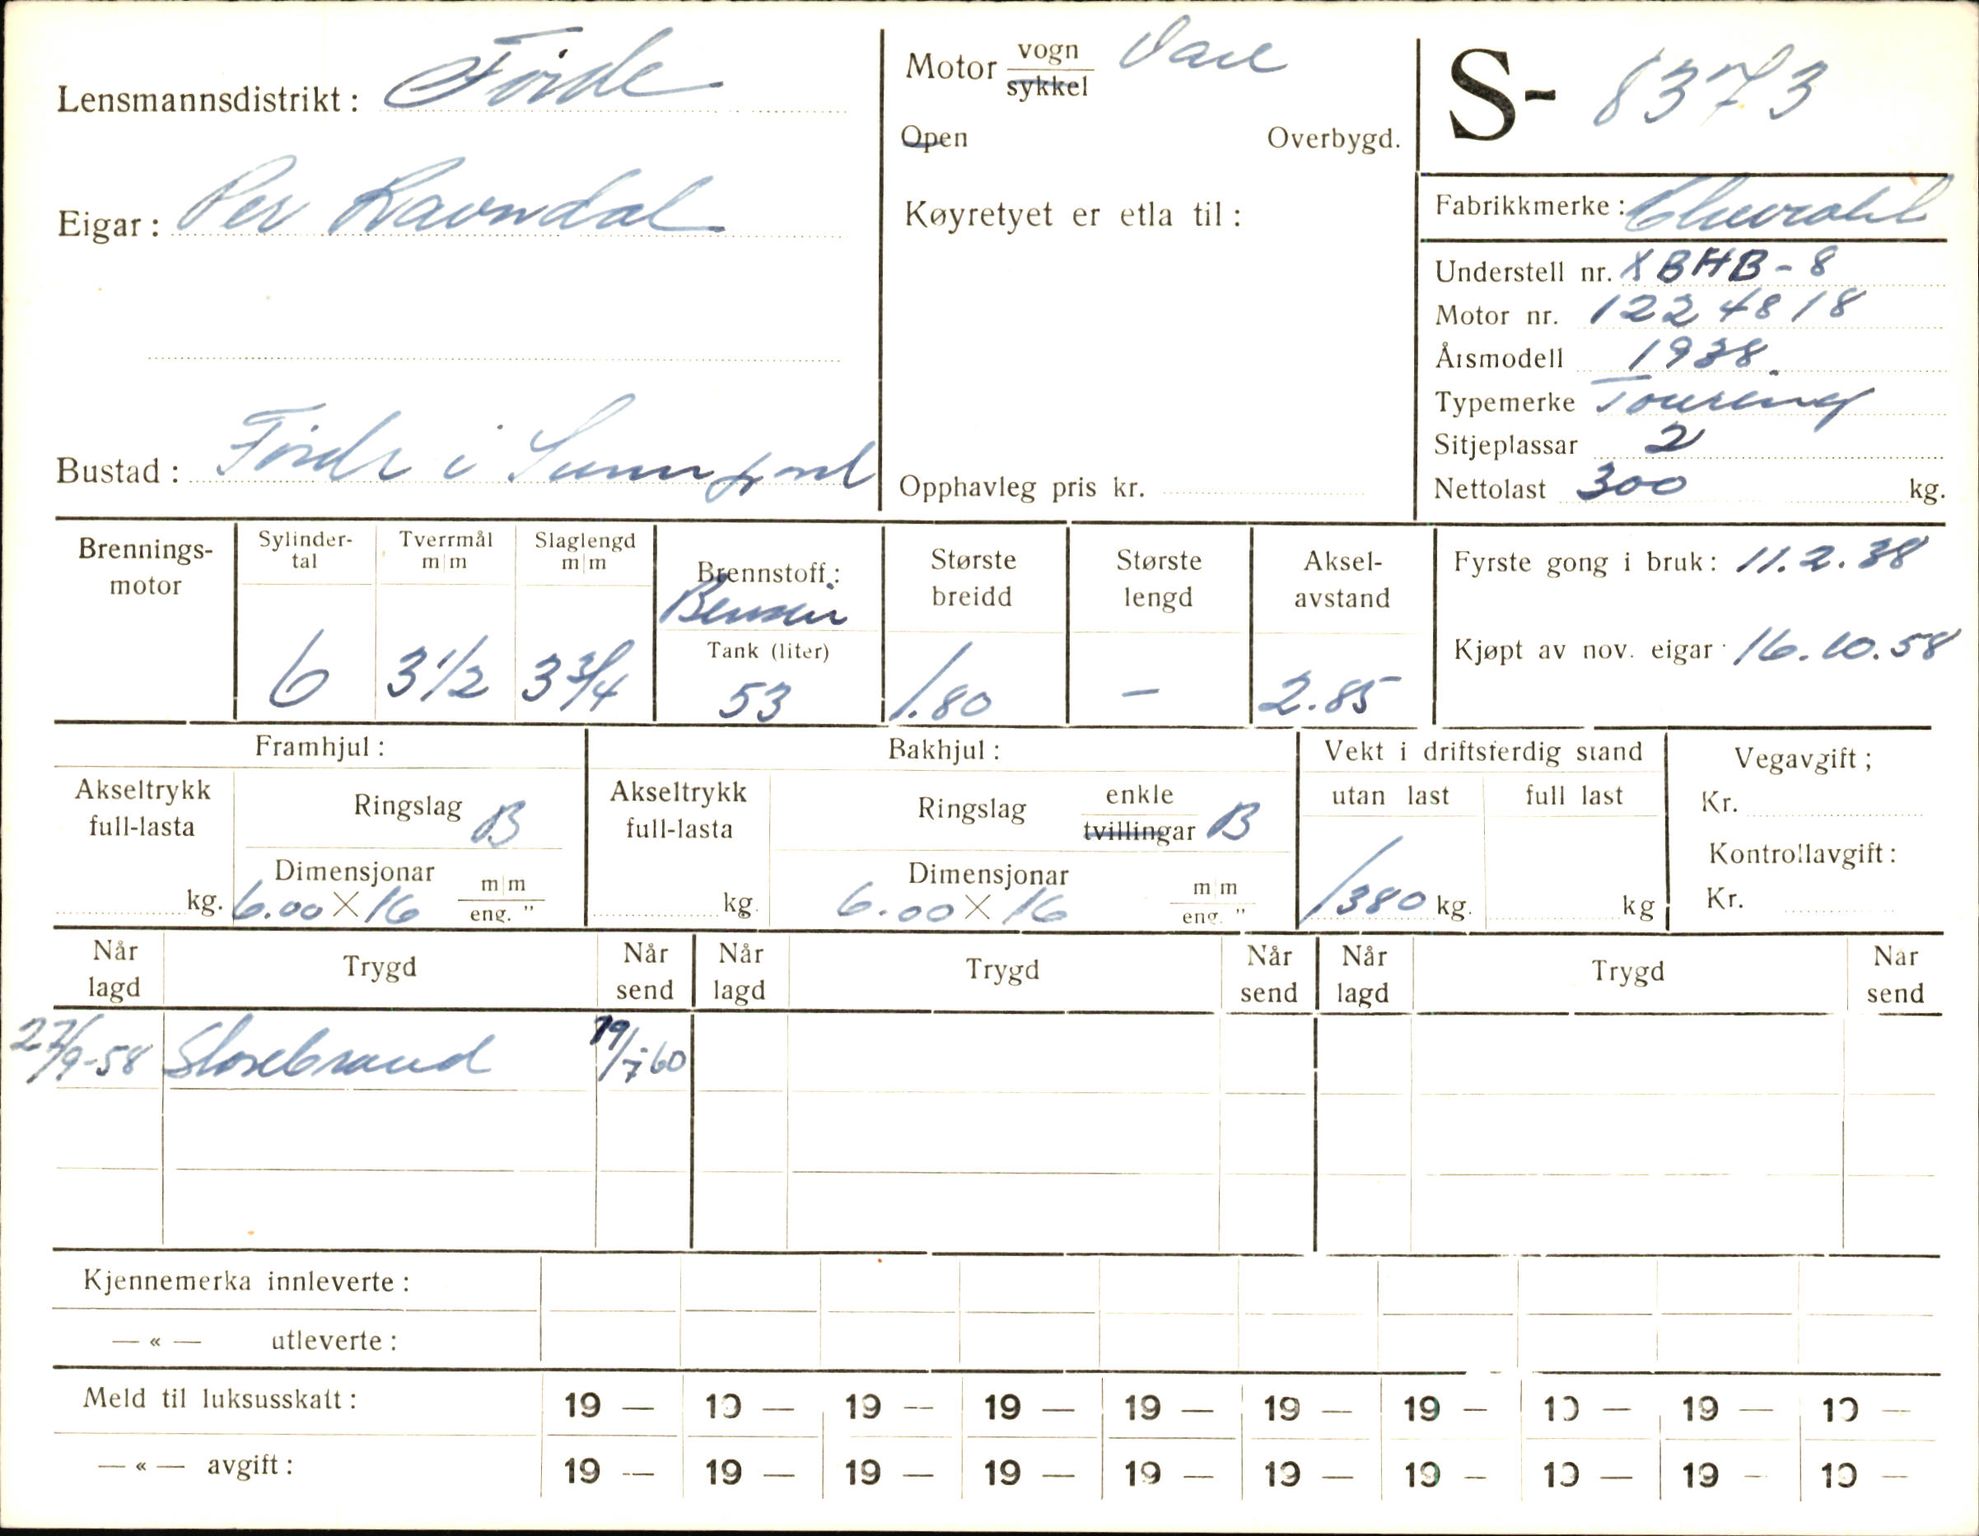 Lensmannsdistrikt: Førde
Eigar: Per Ravndal
Bustad: Førde i Sunnfjord
Motor vogn Vare
sykkel
Open Overbygd.
Køyretyet er etla til:
Opphavleg pris kr.
S- 8373
Fabrikkmerke: Chevrolet
Understell nr. XBHB-8
Motor nr. 1224818
Årsmodell 1938.
Typemerke Touring
Sitjeplassar 2
Nettolast 300 kg.
Brennings-
motor
Sylinder-
tal
6
Tverrmål
m|m
3 1/2
Slaglengd
m|m
3 3/4
Brennstoff:
Bensin
Tank (liter)
53
Største
breidd
1.80
Største
lengd
—
Aksel-
avstand
2.85
Fyrste gong i bruk: 11.2.38
Kjøpt av nov. eigar 16.10.58
Framhjul:
Akseltrykk
full-lasta
kg.
Ringslag B
Dimensjonar
6.00 X 16 m|m
eng. "
Bakhjul:
Akseltrykk
full-lasta
kg.
Ringslag enkle
tvillingar B
Dimensjonar
6.00 X 16 m|m
eng. "
Vekt i driftsferdig stand
utan last full last
1380 kg. kg
Vegavgift;
Kr.
Kontrollavgift:
Kr.
Når
lagd Trygd Når
send Når
lagd Trygd Når
send Når
lagd Trygd Nar
send
27/9-58 Storebrand 19/7-60
Kjennemerka innleverte:
— « — utleverte:
Meld til luksusskatt: 19 — 19 — 19 — 19 — 19 — 19 — 19 — 19 — 19 — 19 —
— « — avgift: 19 — 19 — 19 — 19 — 19 — 19 — 19 — 19 — 19 — 19 —